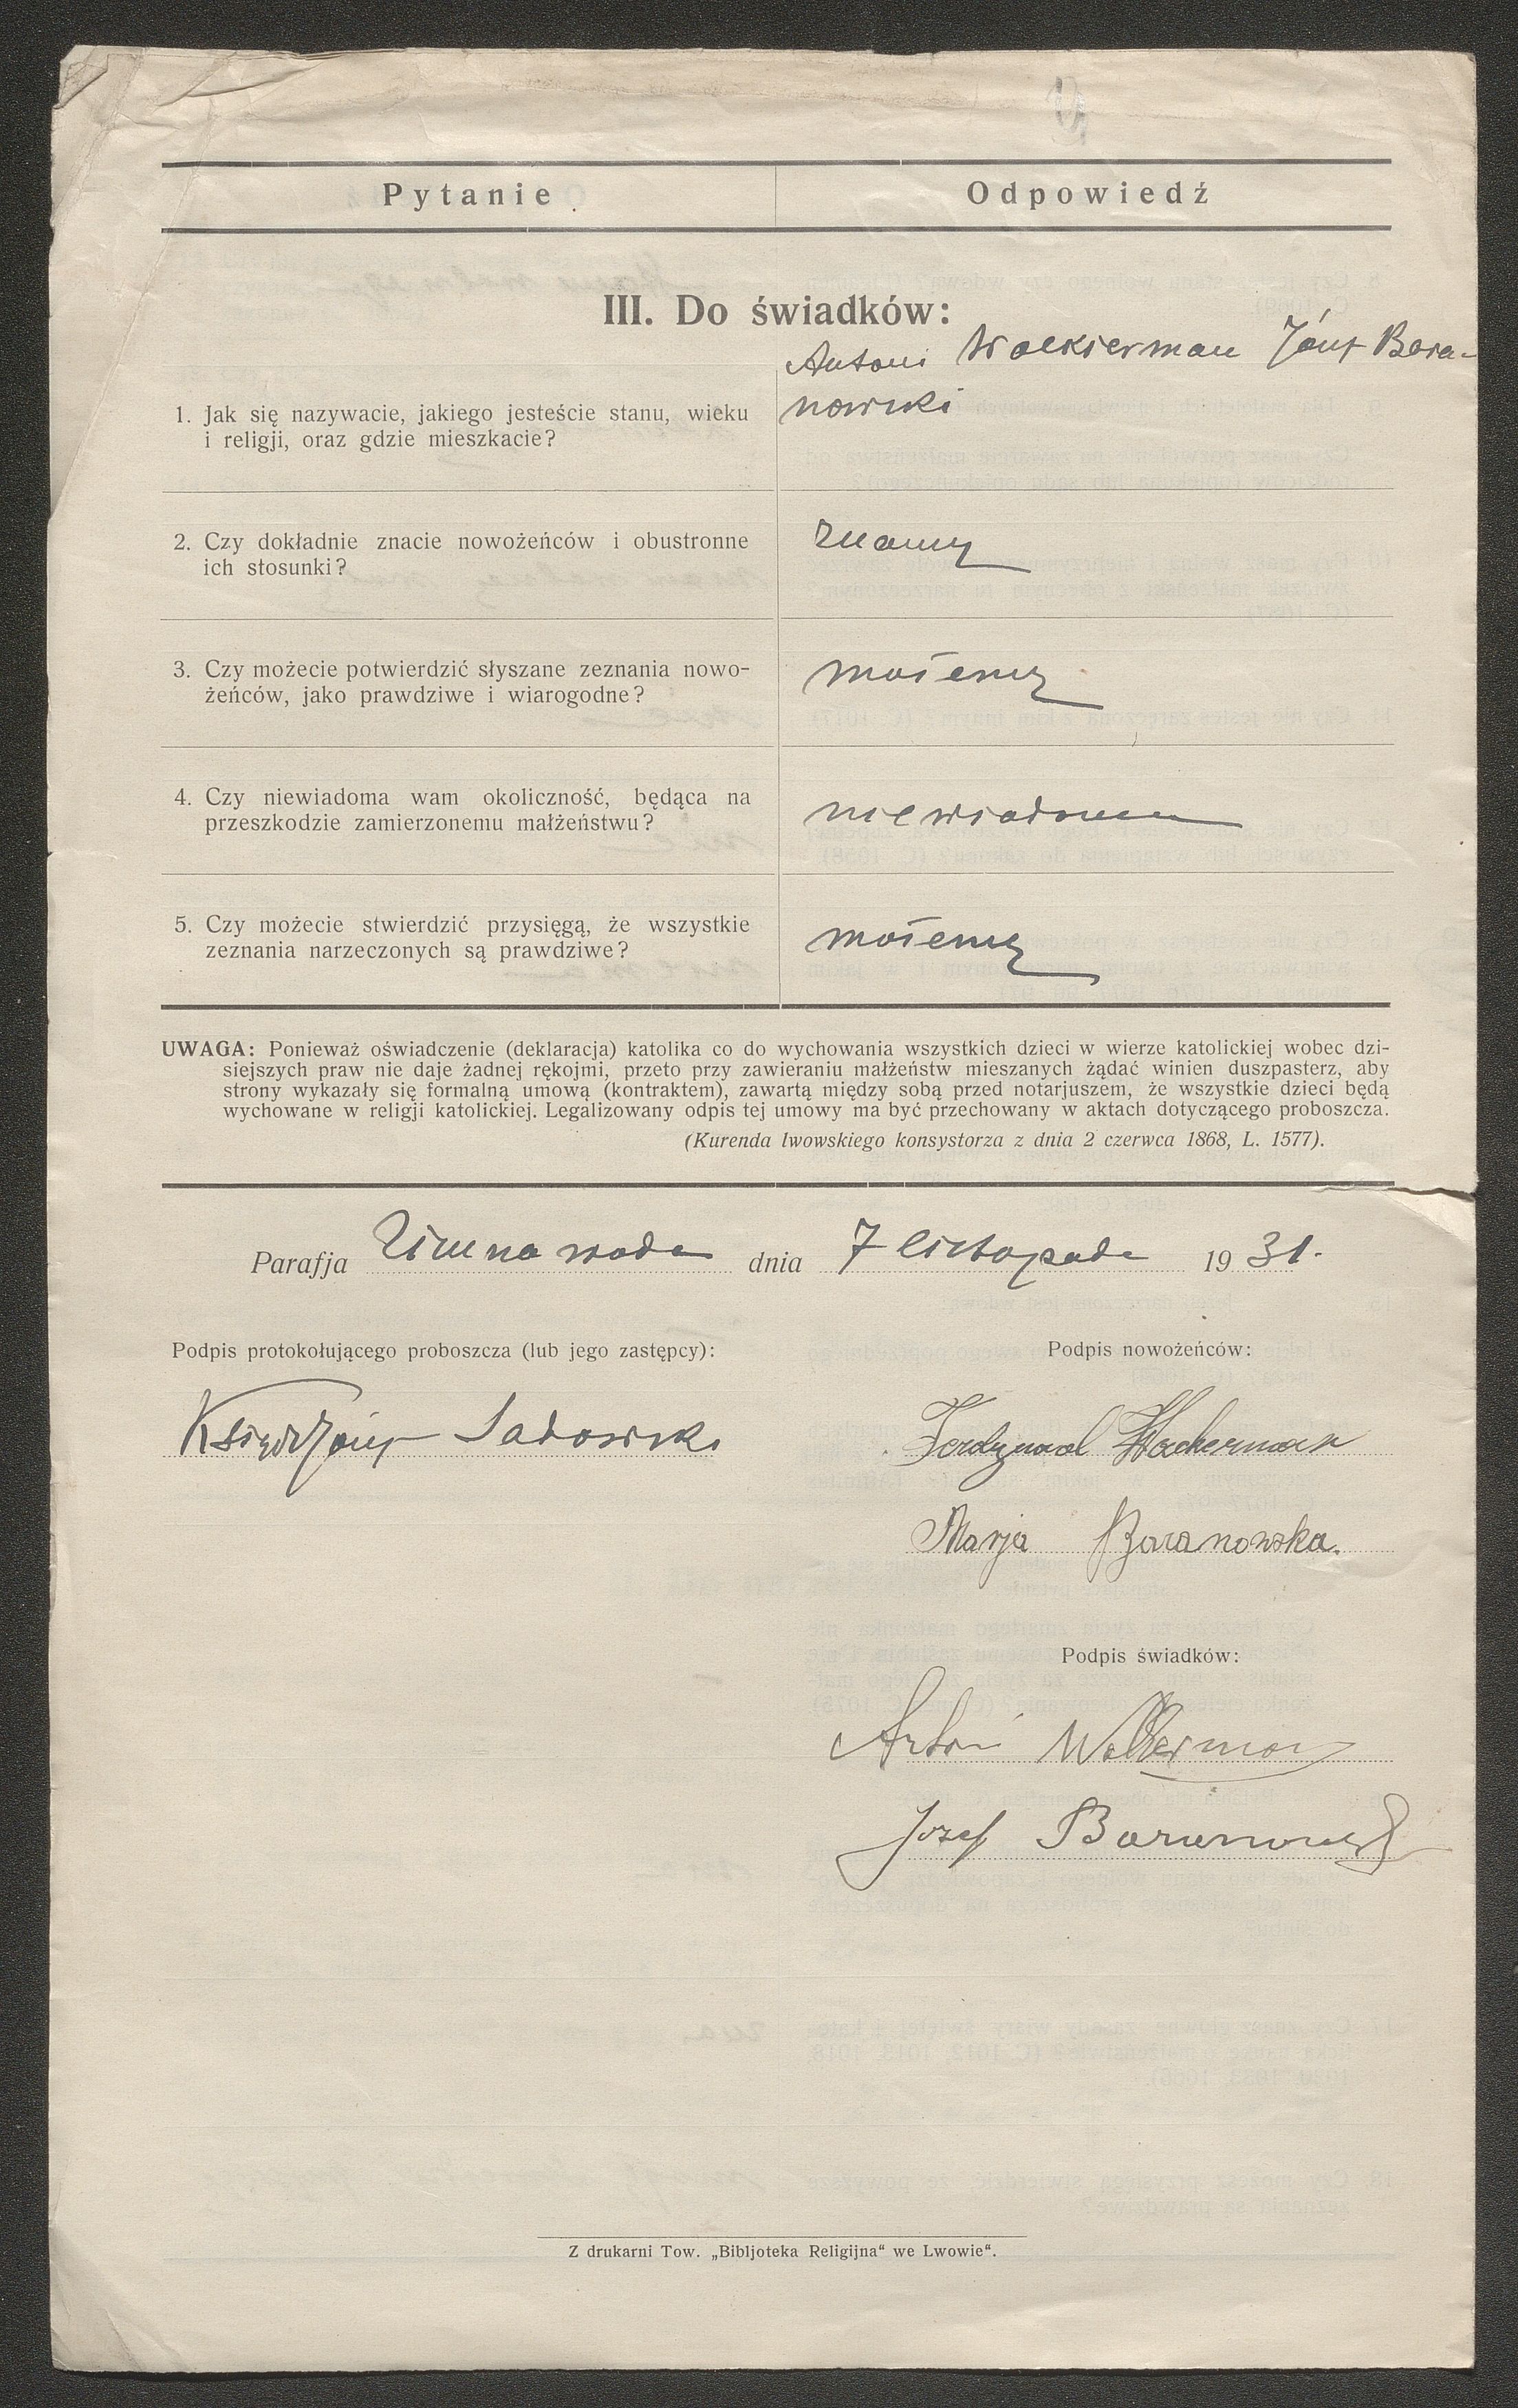 Pytanie
Odpowiedź
III. Do świadków:
Antoni Walkierman Józef Bara-
nowski
1. Jak się nazywacie, jakiego jesteście stanu, wieku
i religji, oraz gdzie mieszkacie?
2. Czy dokładnie znacie nowożeńców i obustronne
ich stosunki?
znamy
3. Czy możecie potwierdzić słyszane zeznania nowo-
żeńców, jako prawdziwe i wiarogodne?
możemy
4. Czy niewiadoma wam okoliczność, będąca na
przeszkodzie zamierzonemu małżeństwu?
niewiadoma
5. Czy możecie stwierdzić przysięgą, że wszystkie
zeznania narzeczonych są prawdziwe?
możemy
UWAGA: Ponieważ oświadczenie (deklaracja) katolika co do wychowania wszystkich dzieci w wierze katolickiej wobec dzi-
siejszych praw nie daje żadnej rękojmi, przeto przy zawieraniu małżeństw mieszanych żądać winien duszpasterz, aby
strony wykazały się formalną umową (kontraktem), zawartą między sobą przed notarjuszem, że wszystkie dzieci będą
wychowane w religji katolickiej. Legalizowany odpis tej umowy ma być przechowany w aktach dotyczącego proboszcza.
(Kurenda lwowskiego konsystorza z dnia 2 czerwca 1868, L. 1577).
Parafja Zimna woda dnia 7 listopada 1931.
Podpis protokołującego proboszcza (lub jego zastępcy):
Ksiądz Józef Sadowski
Podpis nowożeńców:
Ferdynand
Marja Baranowska.
Podpis świadków:
Antoni
Józef Baranowski
Z drukarni Tow. „Bibljoteka Religijna“ we Lwowie“.